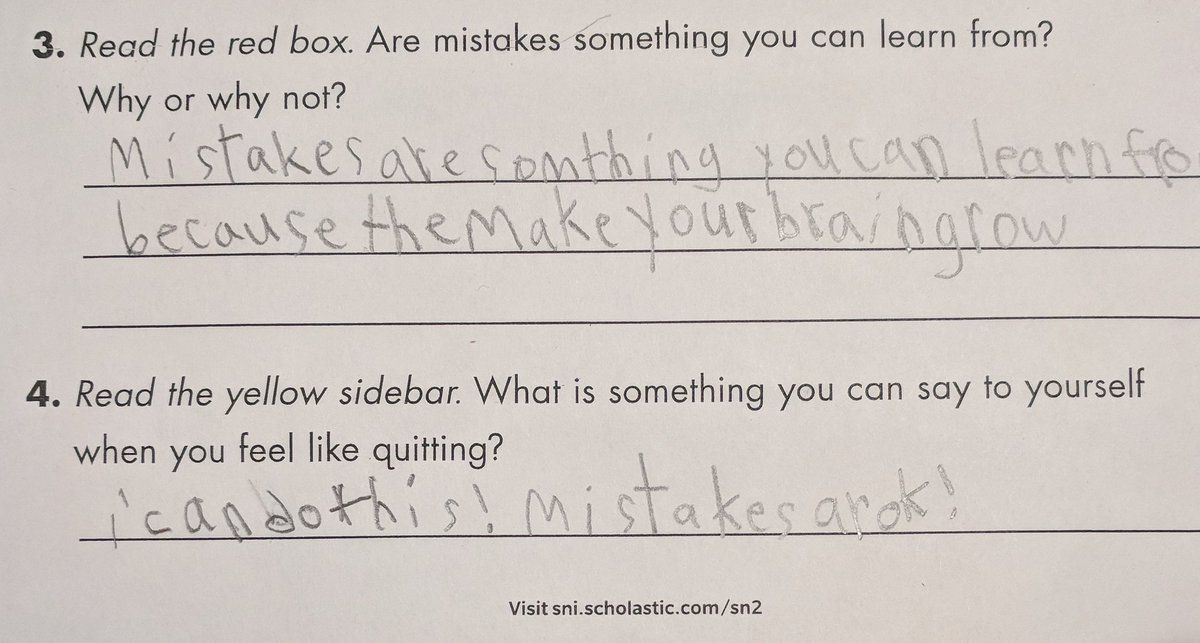 3. Read the red box. Are mistakes something you can learn from?
Why or why not?
Mistakes are somthing you can learn fro
because the make your brain grow
4. Read the yellow sidebar. What is something you can say to yourself
when you feel like quitting?
i can do this! Mistakes ar ok!
Visit sni.scholastic.com/sn2